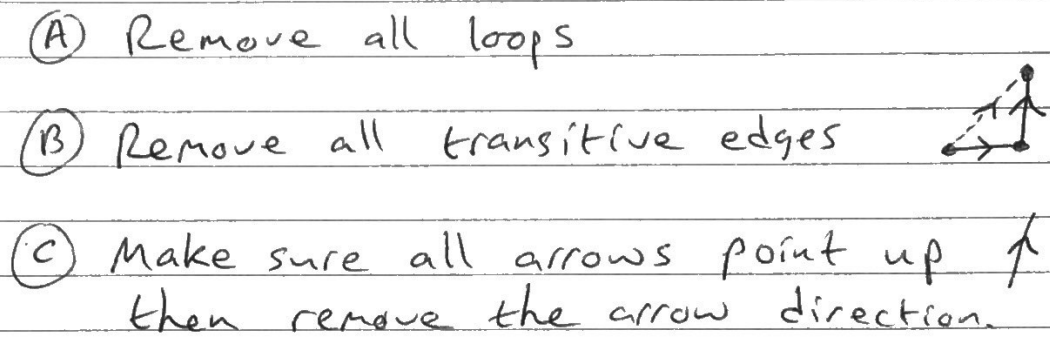 (A) Remove all loops
(B) Remove all transitive edges
(C) Make sure all arrows point up
then remove the arrow direction.